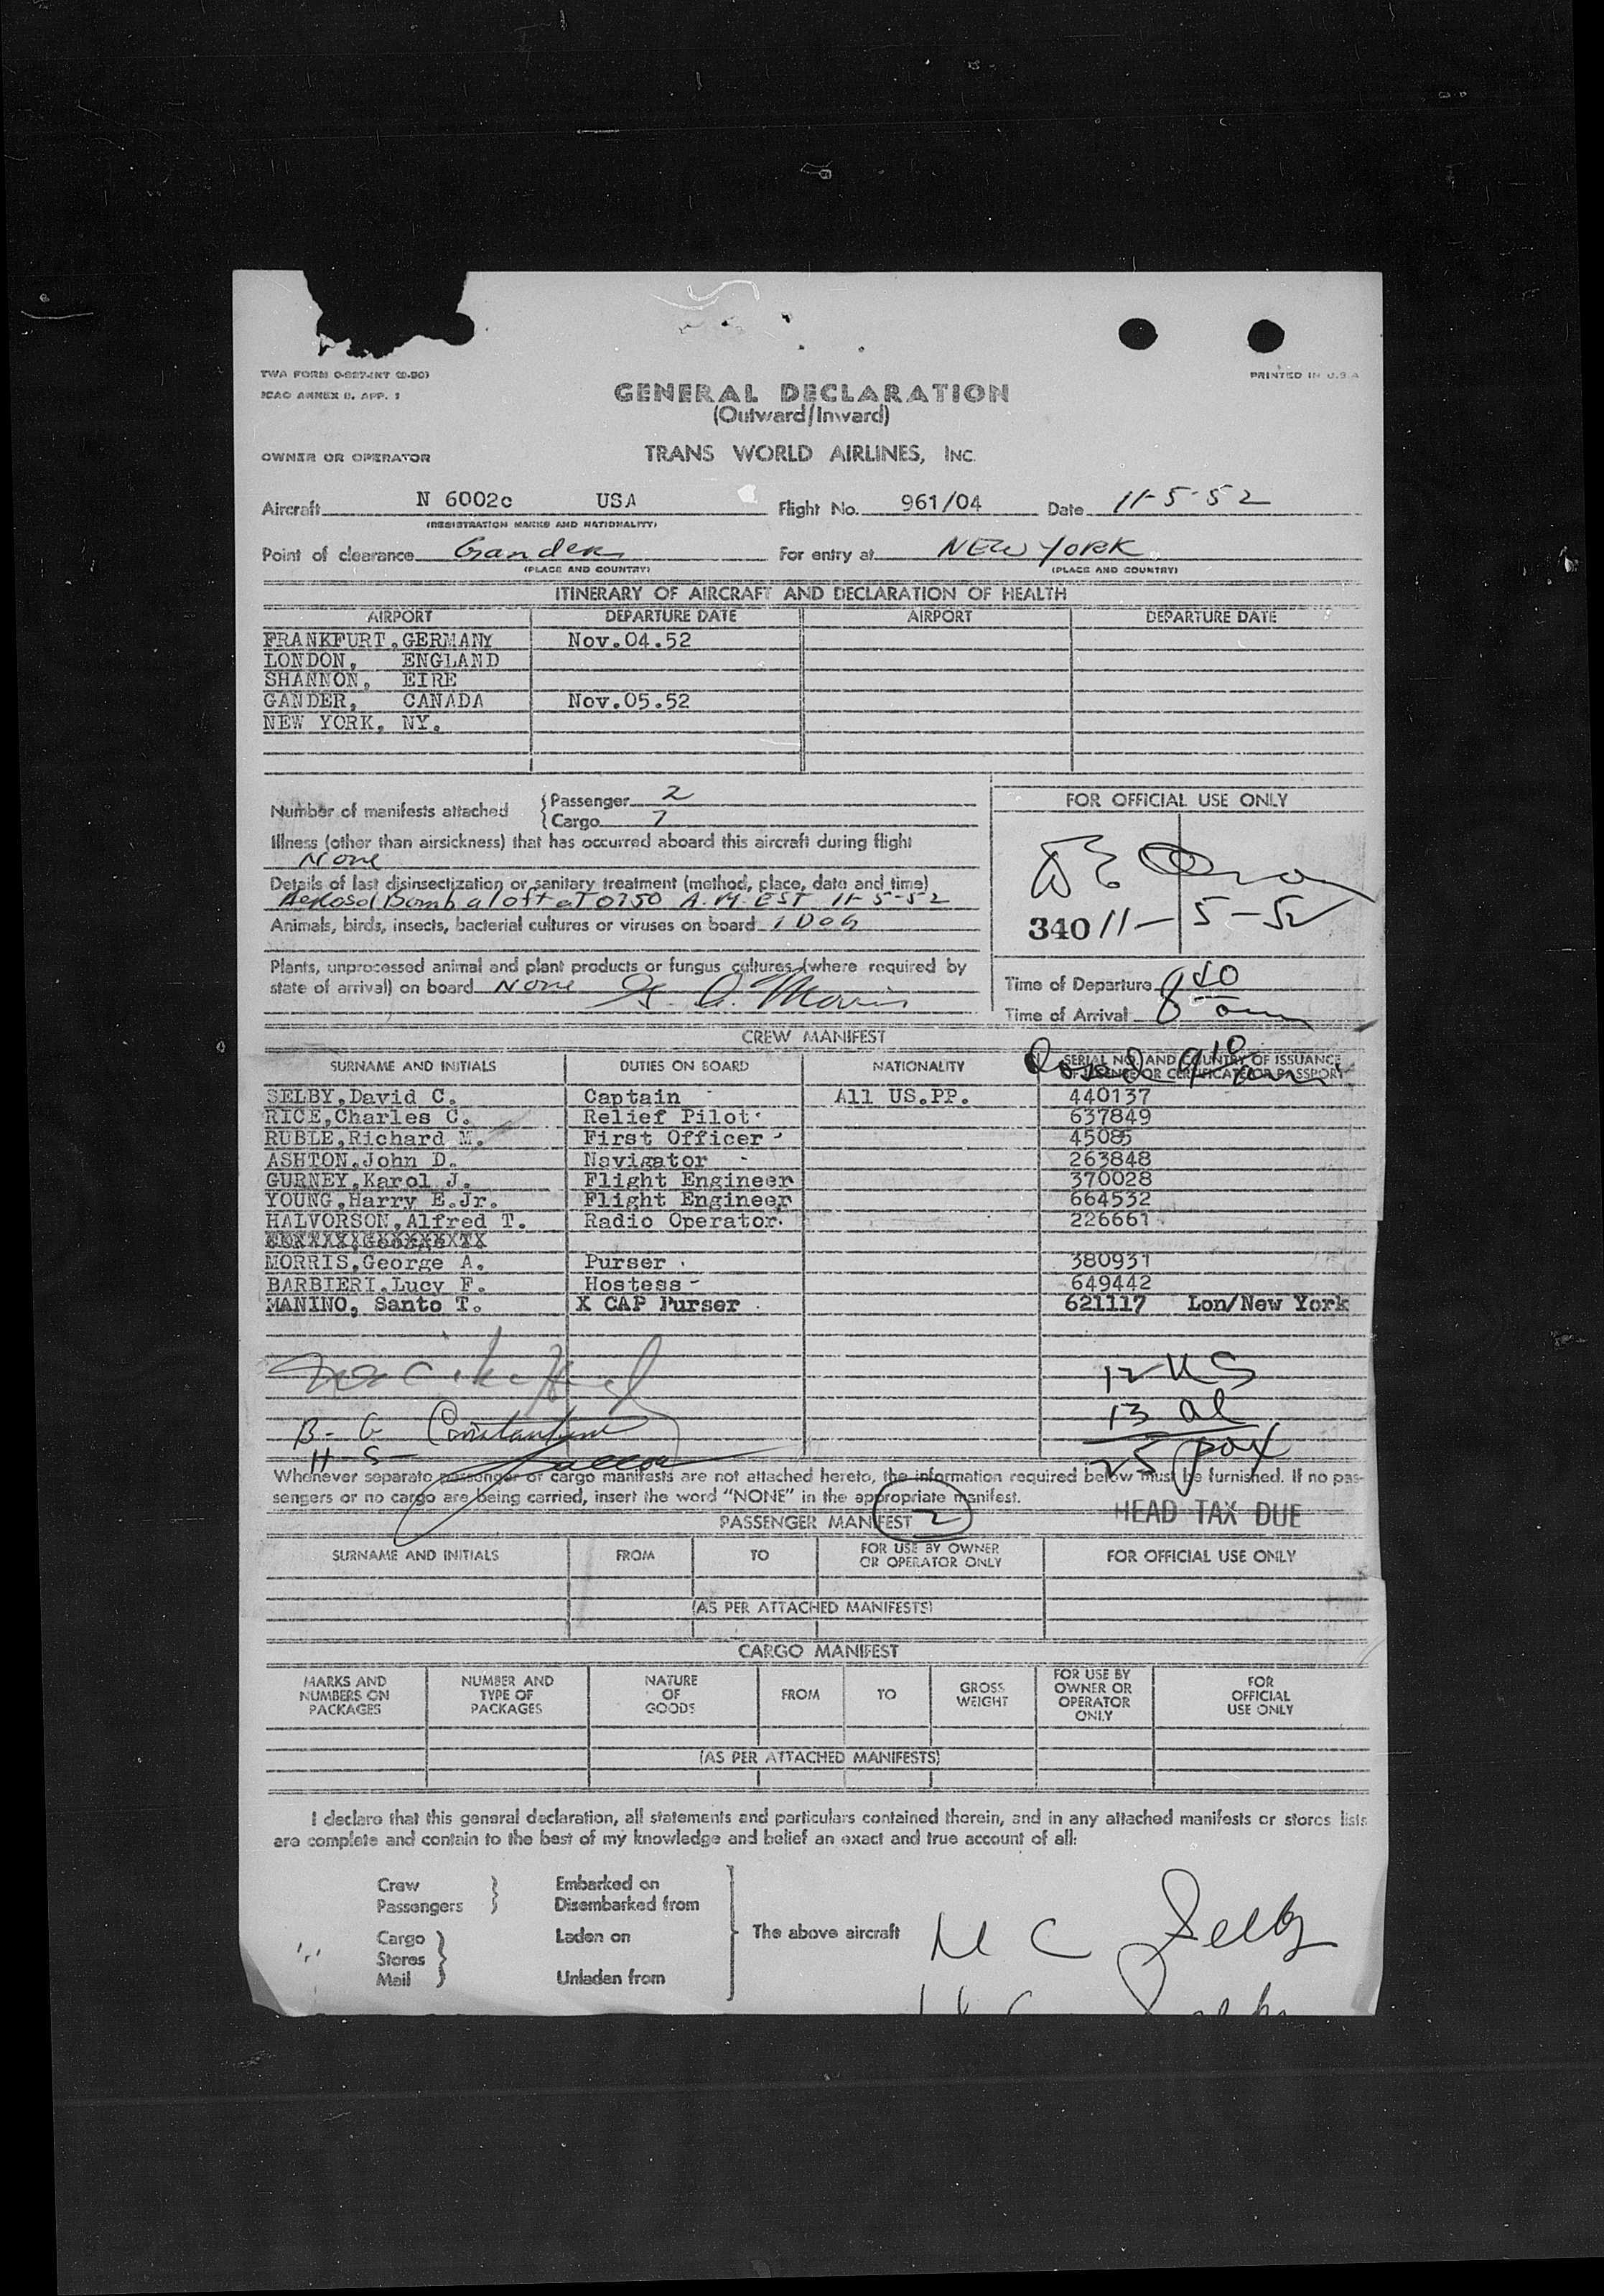 TWA FORM O-227-INT (2-50)
PRINTED IN U.S.A
ICAO ANNEX 9. APP. 1
GENERAL DECLARATION
(Outward/Inward)
OWNER OR OPERATOR
TRANS WORLD AIRLINES, INC.
Aircraft N 6002c USA Flight No. 961/04 Date 11-5-52
(REGISTRATION MARKS AND NATIONALITY)
Point of clearance Gander For entry at NEW YORK
(PLACE AND COUNTRY) (PLACE AND COUNTRY)
ITINERARY OF AIRCRAFT AND DECLARATION OF HEALTH
AIRPORT DEPARTURE DATE AIRPORT DEPARTURE DATE
FRANKFURT.GERMANY Nov.04.52
LONDON, ENGLAND
SHANNON, EIRE
GANDER, CANADA Nov.05.52
NEW YORK, NY.
Number of manifests attached
Passenger 2
Cargo 7
FOR OFFICIAL USE ONLY
Illness (other than airsickness) that has occurred aboard this aircraft during flight
None
Details of last disinsectization or sanitary treatment (method, place, date and time)
Aerosol Bomb aloft at 0750 A.M. EST 11-5-52
Animals, birds, insects, bacterial cultures or viruses on board 1 Dog
340 11-5-52
Plants, unprocessed animal and plant products or fungus cultures (where required by
state of arrival) on board None G. A. Morris
Time of Departure 840
Time of Arrival am
CREW MANIFEST
SURNAME AND INITIALS DUTIES ON BOARD NATIONALITY SERIAL NO. AND COUNTRY OF ISSUANCE
OF LICENSE OR CERTIFICATE OR PASSPORT
SELBY,David C. Captain All US.PP. 440137
RICE,Charles C. Relief Pilot 637849
RUBLE,Richard M. First Officer 45085
ASHTON,John D. Navigator 263848
GURNEY,Karol J. Flight Engineer 370028
YOUNG,Harry E.Jr. Flight Engineer 664532
HALVORSON,Alfred T. Radio Operator 226661
MORRIS,George A. Purser 380931
BARBIERI,Lucy F. Hostess 649442
MANINO, Santo T. X CAP Purser 621117 Lon/New York
12 US
13 al
B- G Constantine
25 pax
H-S-
Whenever separate passenger or cargo manifests are not attached hereto, the information required below must be furnished. If no pas-
sengers or no cargo are being carried, insert the word "NONE" in the appropriate manifest.
HEAD TAX DUE
PASSENGER MANIFEST 2
SURNAME AND INITIALS FROM TO FOR USE BY OWNER OR OPERATOR ONLY FOR OFFICIAL USE ONLY
(AS PER ATTACHED MANIFESTS)
CARGO MANIFEST
MARKS AND NUMBERS ON PACKAGES NUMBER AND TYPE OF PACKAGES NATURE OF GOODS FROM TO GROSS WEIGHT FOR USE BY OWNER OR OPERATOR ONLY FOR OFFICIAL USE ONLY
(AS PER ATTACHED MANIFESTS)
I declare that this general declaration, all statements and particulars contained therein, and in any attached manifests or stores lists
are complete and contain to the best of my knowledge and belief an exact and true account of all:
Crew Embarked on
Passengers Disembarked from
Cargo Laden on The above aircraft C Selby
Stores
Mail Unladen from